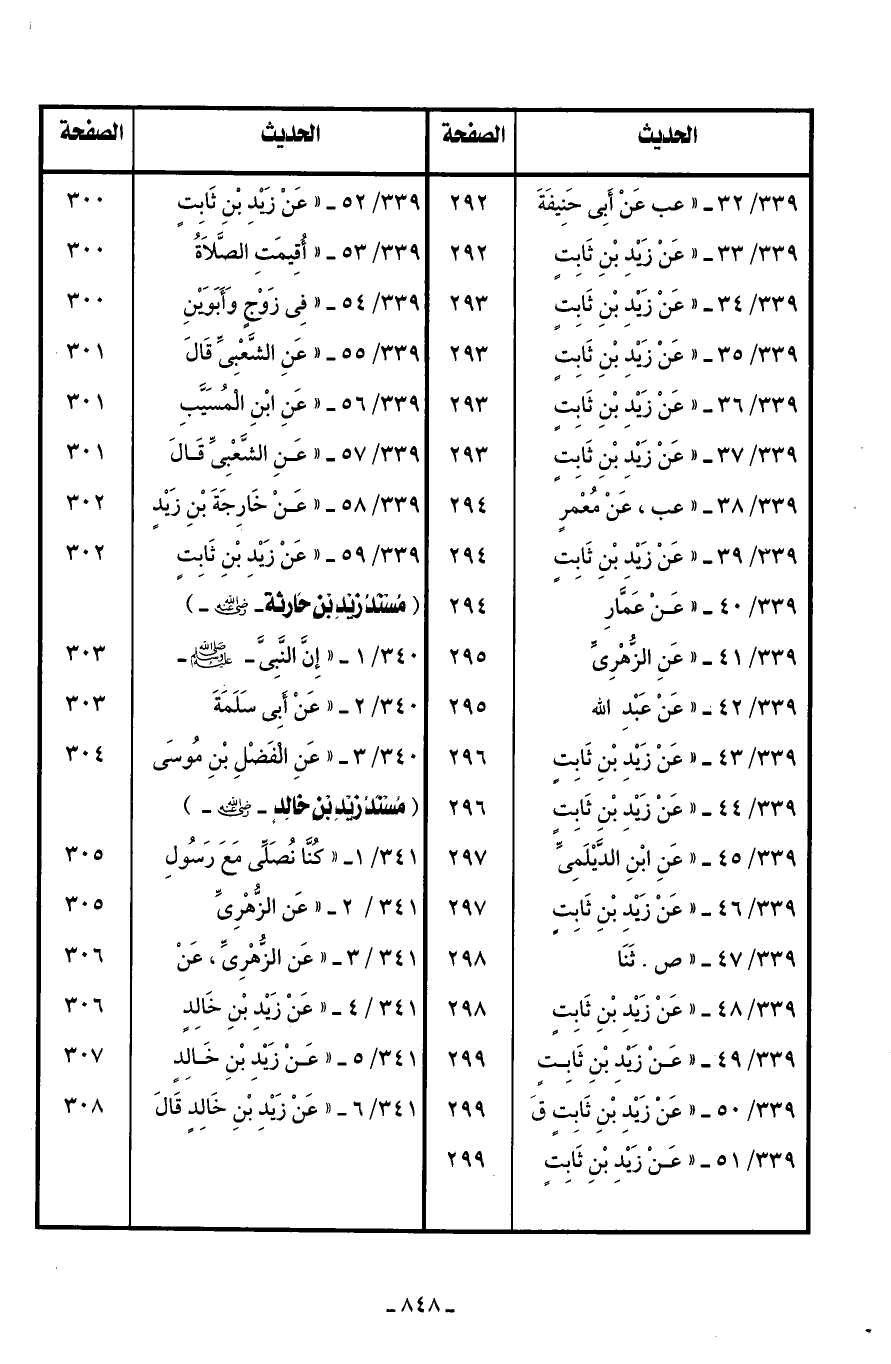 الحديث الصفحة
٣٣٩/ ٣٢ ـ « عب عَنْ أَبِى حَنِيفَةَ ٢٩٢
٣٣٩/ ٣٣ ـ « عَنْ زَيْدِ بْنِ ثَابِتٍ ٢٩٢
٣٣٩/ ٣٤ ـ « عَنْ زَيْدِ بْنِ ثَابِتٍ ٢٩٣
٣٣٩/ ٣٥ ـ « عَنْ زَيْدِ بْنِ ثَابِتٍ ٢٩٣
٣٣٩/ ٣٦ ـ « عَنْ زَيْدِ بْنِ ثَابِتٍ ٢٩٣
٣٣٩/ ٣٧ ـ « عَنْ زَيْدِ بْنِ ثَابِتٍ ٢٩٣
٣٣٩/ ٣٨ ـ « عب ، عَنْ مُعْمَرٍ ٢٩٤
٣٣٩/ ٣٩ ـ « عَنْ زَيْدِ بْنِ ثَابِتٍ ٢٩٤
٣٣٩/ ٤٠ ـ « عَـنْ عَمَّارِ ٢٩٤
٣٣٩/ ٤١ ـ « عَنِ الزُّهْرِىِّ ٢٩٥
٣٣٩/ ٤٢ ـ « عَنْ عَبْدِ الله ٢٩٥
٣٣٩/ ٤٣ ـ « عَنْ زَيْدِ بْنِ ثَابِتٍ ٢٩٦
٣٣٩/ ٤٤ ـ « عَنْ زَيْدِ بْنِ ثَابِتٍ ٢٩٦
٣٣٩/ ٤٥ ـ « عَنِ ابْنِ الدَّيْلَمِىِّ ٢٩٧
٣٣٩/ ٤٦ ـ « عَنْ زَيْدِ بْنِ ثَابِتٍ ٢٩٧
٣٣٩/ ٤٧ ـ « ص . ثَنَا ٢٩٨
٣٣٩/ ٤٨ ـ « عَنْ زَيْدِ بْنِ ثَابِتٍ ٢٩٨
٣٣٩/ ٤٩ ـ « عَـنْ زَيْدِ بْنِ ثَابِـتٍ ٢٩٩
٣٣٩/ ٥٠ ـ « عَنْ زَيْدِ بْنِ ثَابِتٍ قَ ٢٩٩
٣٣٩/ ٥١ ـ « عَـنْ زَيْدِ بْنِ ثَابِتٍ ٢٩٩
الحديث الصفحة
٣٣٩/ ٥٢ ـ « عَنْ زَيْدِ بْنِ ثَابِتٍ ٣٠٠
٣٣٩/ ٥٣ ـ « أُقِيمَتِ الصَّلاَةُ ٣٠٠
٣٣٩/ ٥٤ ـ « فِى زَوْجٍ وَأَبَوَيْنِ ٣٠٠
٣٣٩/ ٥٥ ـ « عَنِ الشَّعْبِىِّ قَالَ ٣٠١
٣٣٩/ ٥٦ ـ « عَنِ ابْنِ الْمُسَيَّبِ ٣٠١
٣٣٩/ ٥٧ ـ « عَـنِ الشَّعْبِىِّ قَـالَ ٣٠١
٣٣٩/ ٥٨ ـ « عَـنْ خَارِجَةَ بْنِ زَيْدٍ ٣٠٢
٣٣٩/ ٥٩ ـ « عَنْ زَيْدِ بْنِ ثَابِتٍ ٣٠٢
( مُسْنَدُ زَيْدِ بْنِ حَارِثَة ـ رضي الله عنه ـ )
٣٤٠/ ١ ـ « إِنَّ النَّبِىَّ ـ ﷺ ـ ٣٠٣
٣٤٠/ ٢ ـ « عَنْ أَبِى سَلَمَةَ ٣٠٣
٣٤٠/ ٣ ـ « عَنِ الْفَضْلِ بْنِ مُوسَى ٣٠٤
( مُسْنَدُ زَيْدِ بْنِ خَالِدٍ ـ رضي الله عنه ـ )
٣٤١/ ١ـ « كُنَّا نُصَلِّى مَعَ رَسُولِ ٣٠٥
٣٤١/ ٢ ـ « عَنِ الزُّهْرِىِّ ٣٠٥
٣٤١ / ٣ ـ « عَنِ الزُّهْرِىِّ ، عَنْ ٣٠٦
٣٤١ / ٤ ـ « عَنْ زَيْدِ بْنِ خَالِدٍ ٣٠٦
٣٤١/ ٥ ـ « عَـنْ زَيْدِ بْنِ خَـالِدٍ ٣٠٧
٣٤١/ ٦ ـ « عَنْ زَيْدِ بْنِ خَالِدٍ قَالَ ٣٠٨
ـ ٨٤٨ ـ